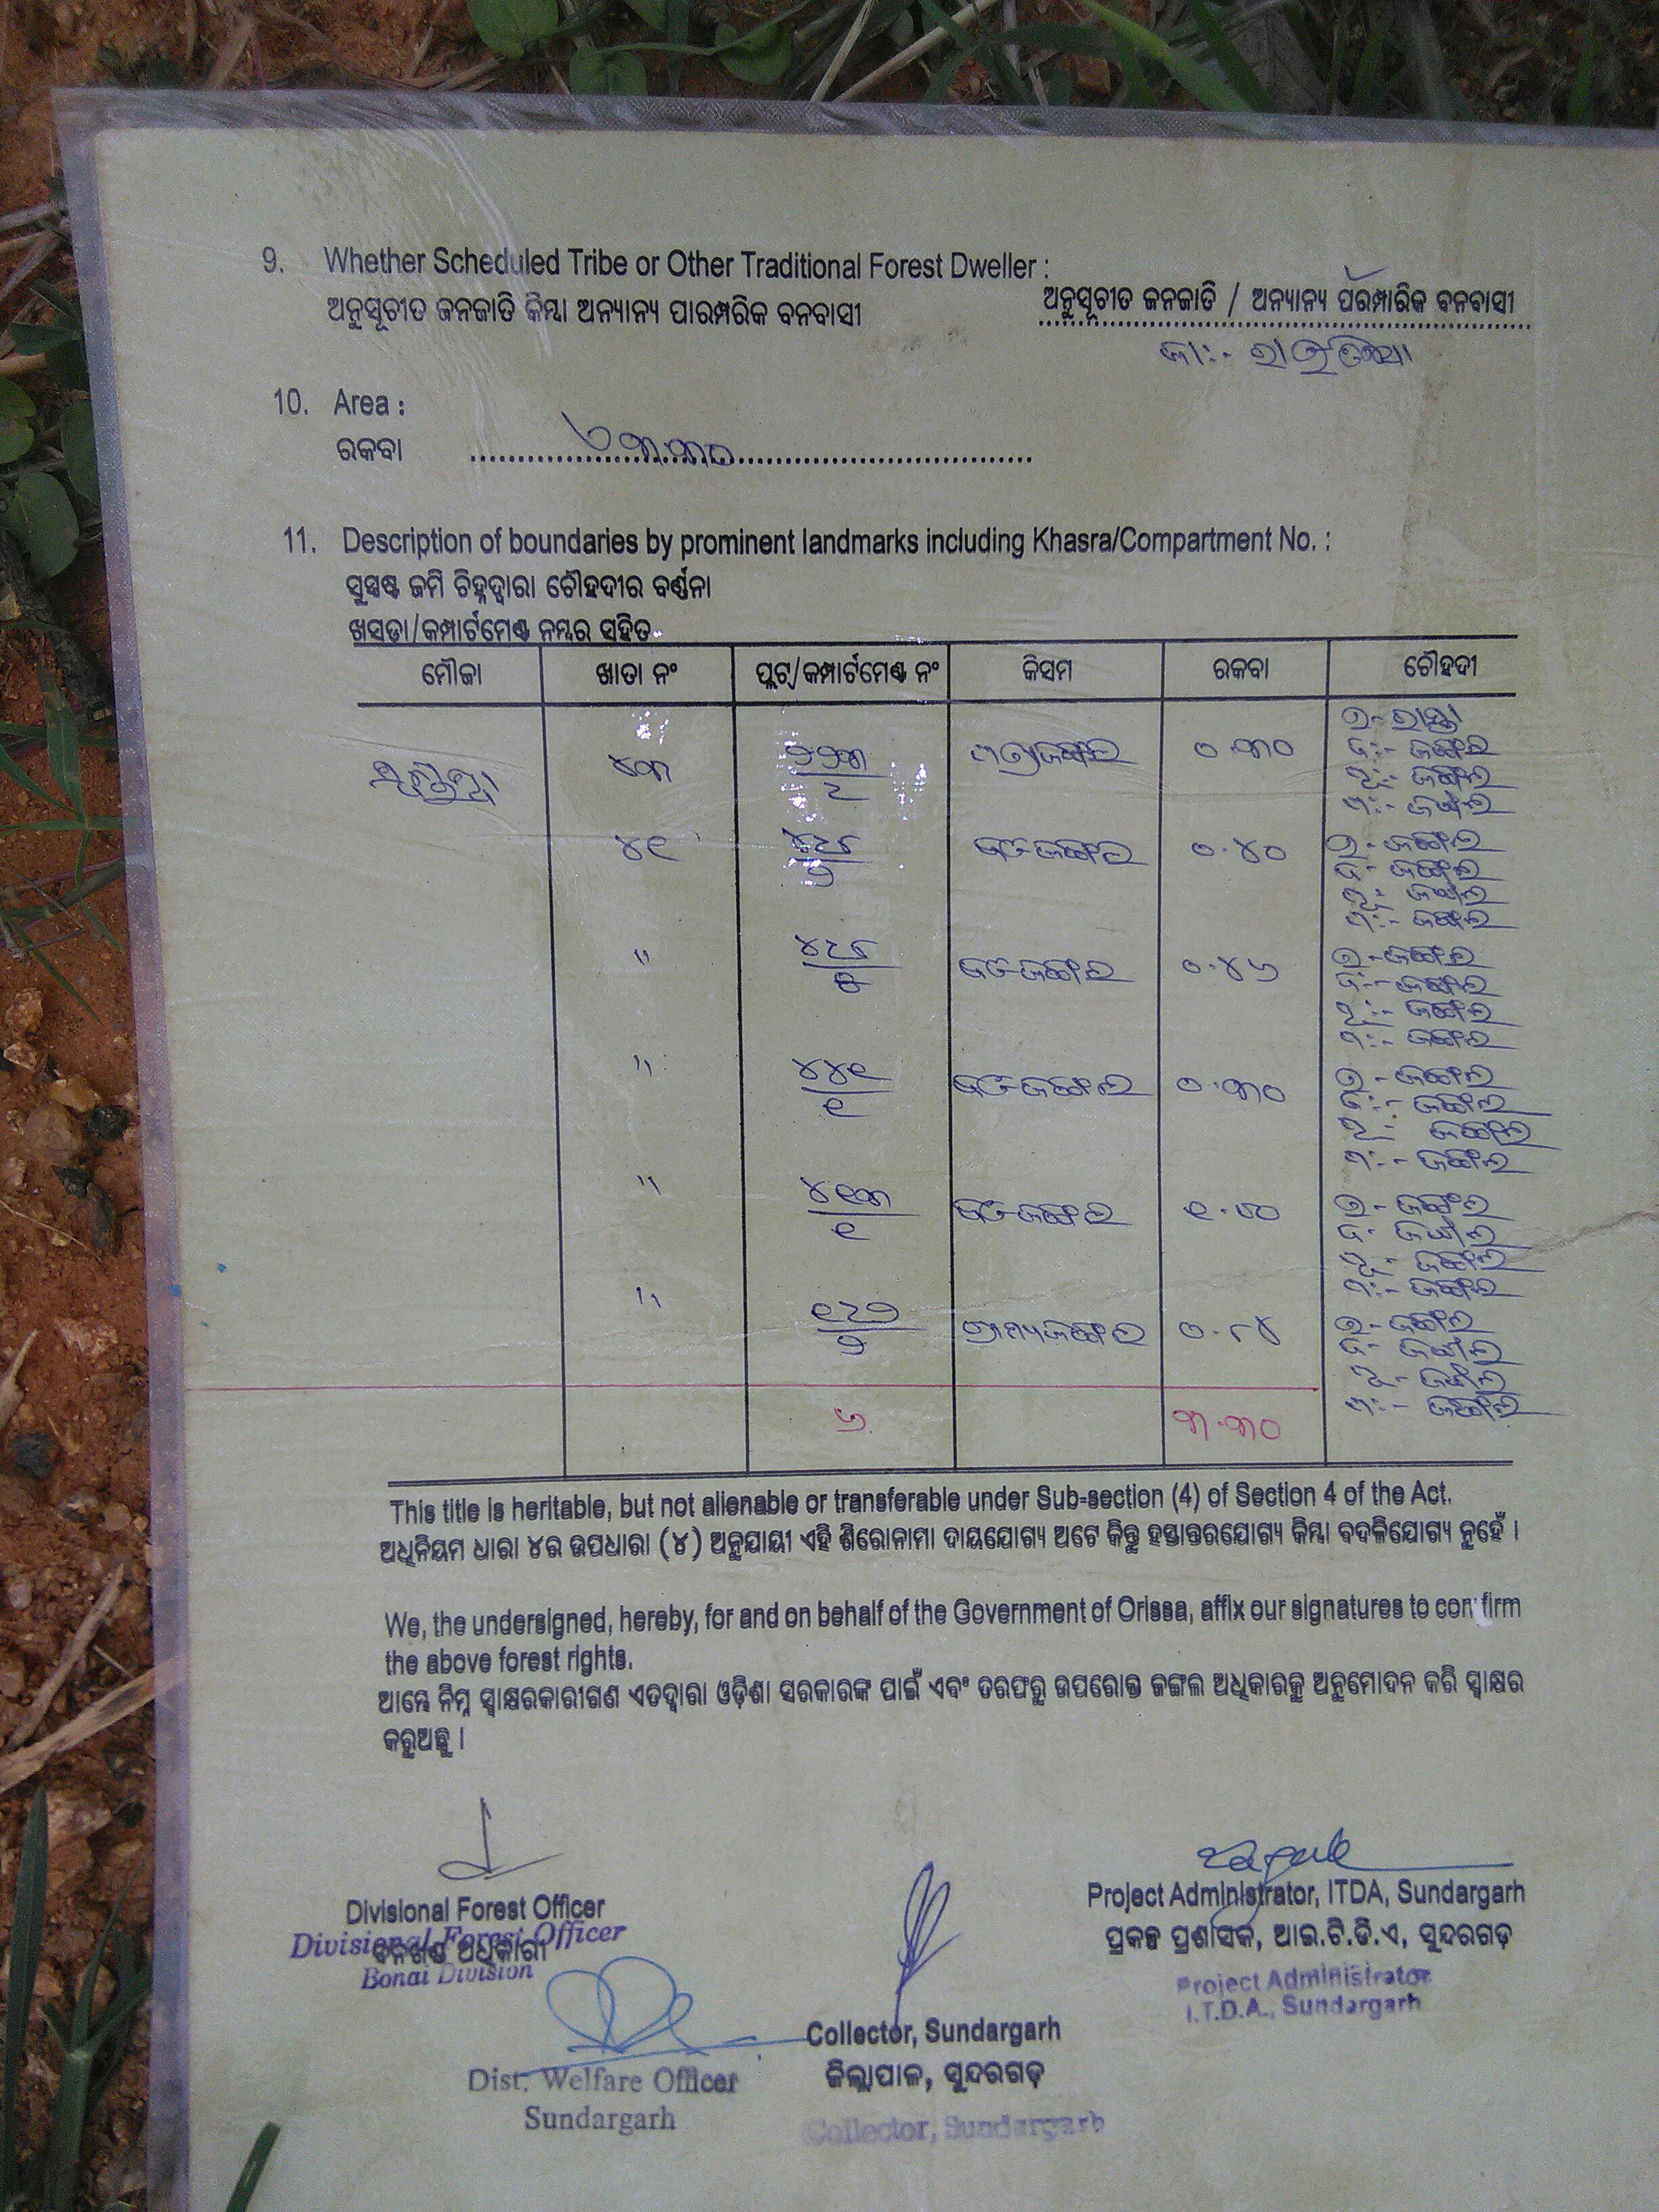 9. Whether Scheduled Tribe or Other Traditional Forest Dweller :
ଅନୁସୂଚୀତ ଜନଜାତି କିମ୍ବା ଅନ୍ୟାନ୍ୟ ପାରମ୍ପରିକ ବନବାସୀ
ଅନୁସୂଚୀତ ଜନଜାତି / ଅନ୍ୟାନ୍ୟ ପରମ୍ପାରିକ ବନବାସୀ
10. Area :
ରକବା
11. Description of boundaries by prominent landmarks including Khasra/Compartment No. :
ସୁସ୍ପଷ୍ଟ ଜମି ଚିହ୍ନଦ୍ଵାରା ଚୌହଦୀର ବର୍ଣ୍ଣନା
ଖସଡା/କମ୍ପାର୍ଟମେଣ୍ଟ ନମ୍ବର ସହିତ
ମୌଜା ଖାତା ନଂ ପ୍ଲଟ୍/କମ୍ପାର୍ଟମେଣ୍ଟ ନଂ କିସମ ରକବା ଚୌହଦୀ
ଉ- ରାସ୍ତା
୦.୩୦ ଦଃ- ଜଙ୍ଗଲ
ପୂଃ- ଜଙ୍ଗଲ
ପଃ- ଜଙ୍ଗଲ
୪୧ ୦.୪୦ ଉ- ଜଙ୍ଗଲ
ଦ- ଜଙ୍ଗଲ
ପୂ- ଜଙ୍ଗଲ
ପଃ- ଜଙ୍ଗଲ
" ୦.୪୬ ଉ- ଜଙ୍ଗଲ
ଦଃ- ଜଙ୍ଗଲ
ପୂଃ- ଜଙ୍ଗଲ
ପଃ- ଜଙ୍ଗଲ
" ୪୪୧/୧ ୦.୩୦ ଉ- ଜଙ୍ଗଲ
ଦଃ- ଜଙ୍ଗଲ
ପୂ- ଜଙ୍ଗଲ
ପଃ- ଜଙ୍ଗଲ
" ୪୧୩/୧ ୧.୦୦ ଉ- ଜଙ୍ଗଲ
ଦ- ଜଙ୍ଗଲ
ପୂ- ଜଙ୍ଗଲ
ପଃ- ଜଙ୍ଗଲ
" ଗ୍ରାମ୍ୟଜଙ୍ଗଲ ୦.୮୪ ଉ- ଜଙ୍ଗଲ
ଦ- ଜଙ୍ଗଲ
ପୂ- ଜଙ୍ଗଲ
ପଃ- ଜଙ୍ଗଲ
୬ ୩.୩୦
This title is heritable, but not alienable or transferable under Sub-section (4) of Section 4 of the Act.
ଅଧିନିୟମ ଧାରା ୪ର ଉପଧାରା (୪) ଅନୁଯାୟୀ ଏହି ଶିରୋନାମା ଦାୟଯୋଗ୍ୟ ଅଟେ କିନ୍ତୁ ହସ୍ତାନ୍ତରଯୋଗ୍ୟ କିମ୍ବା ବଦଳିଯୋଗ୍ୟ ନୁହେଁ ।
We, the undersigned, hereby, for and on behalf of the Government of Orissa, affix our signatures to confirm
the above forest rights.
ଆମ୍ଭେ ନିମ୍ନ ସ୍ଵାକ୍ଷରକାରୀଗଣ ଏତଦ୍ଵାରା ଓଡ଼ିଶା ସରକାରଙ୍କ ପାଇଁ ଏବଂ ତରଫରୁ ଉପରୋକ୍ତ ଜଙ୍ଗଲ ଅଧିକାରକୁ ଅନୁମୋଦନ କରି ସ୍ଵାକ୍ଷର
କରୁଅଛୁ ।
Divisional Forest Officer
ବନଖଣ୍ଡ ଅଧିକାରୀ
Divisional Forest Officer
Bonai Division
Project Administrator, ITDA, Sundargarh
ପ୍ରକଳ୍ପ ପ୍ରଶାସକ, ଆଇ.ଟି.ଡି.ଏ, ସୁନ୍ଦରଗଡ଼
Project Administrator
I.T.D.A., Sundargarh
Collector, Sundargarh
ଜିଲ୍ଲାପାଳ, ସୁନ୍ଦରଗଡ଼
Collector, Sundargarh
Dist. Welfare Officer
Sundargarh